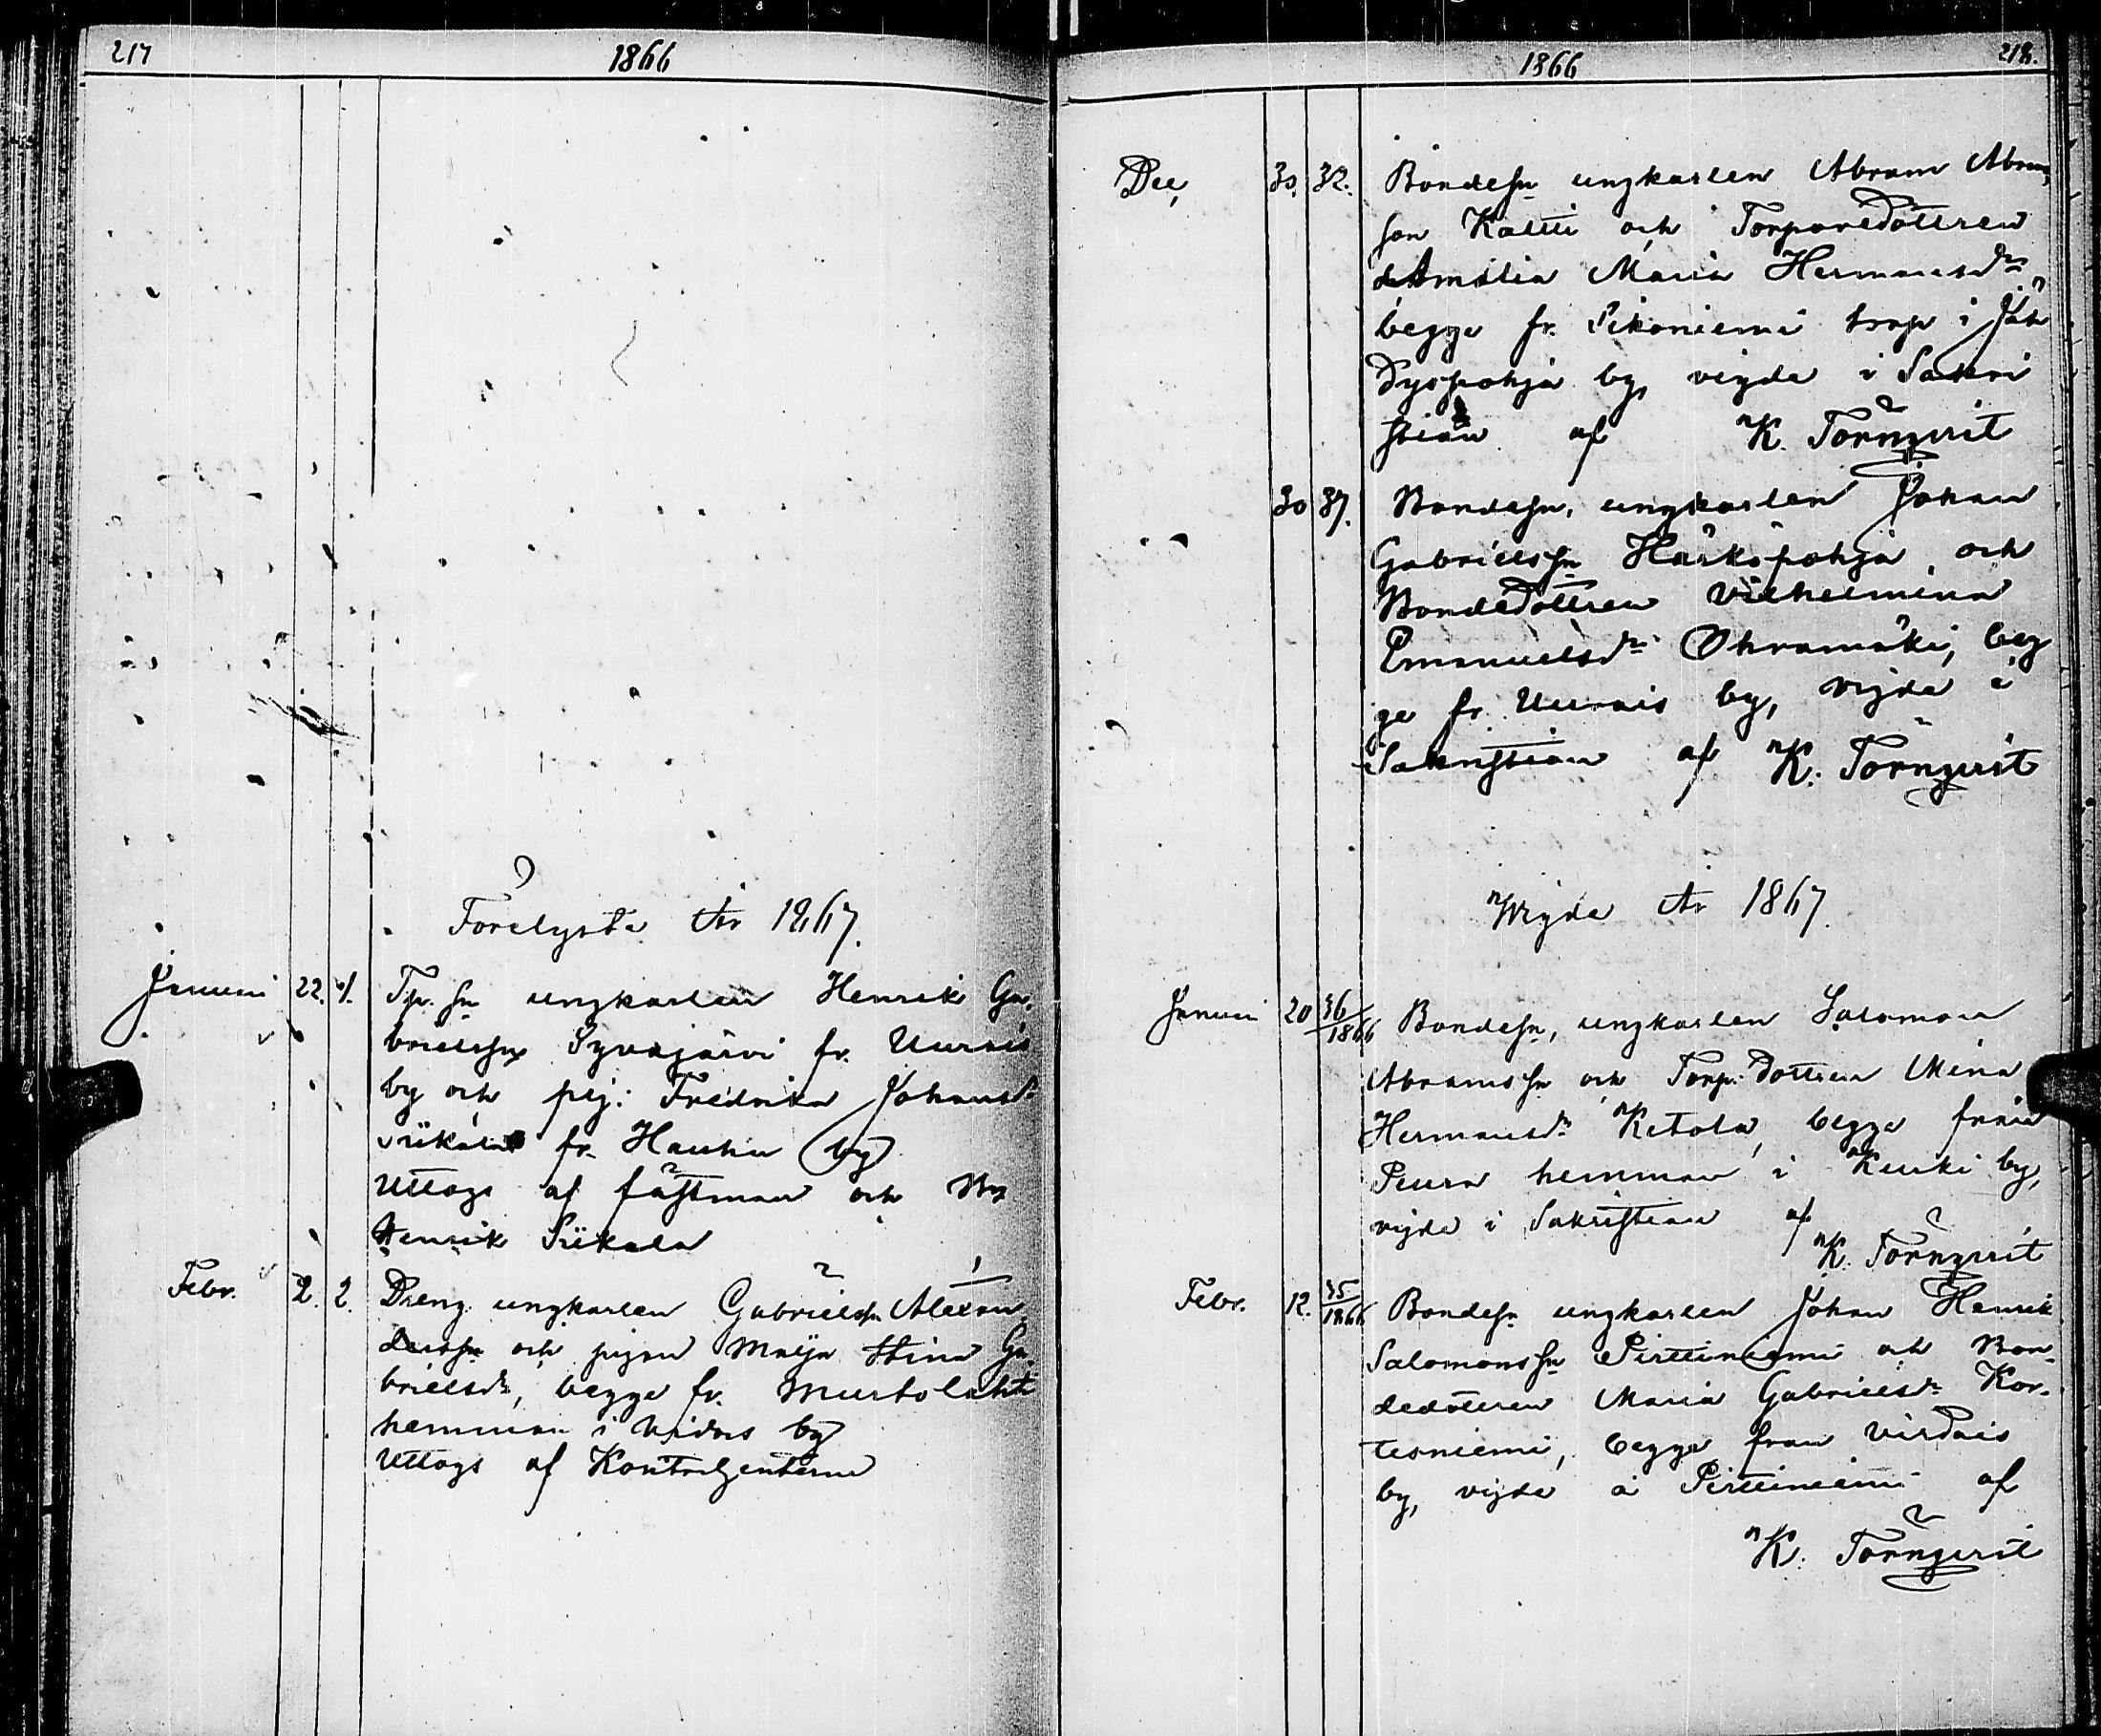 217
1866
Förelysta År 1867.
Januari 22. 1. Tp. sn ungkarlen Henrik Ga-
brielssn Syväjärvi fr. Uurais
by och pig: Fredrika Johansdr
Siikala fr. Hauhu by
Uttogs af fästman och
Henrik Siikala
Febr. 2. 2. Dreng. ungkarlen Gabriel Alexan
derssn och pigan Maija Stina Ga-
brielsdr, begge fr. Murtolahti
hemman i by
Uttogs af Kontrahenterne
1866
218.
Dec, 30. 32. Bondesn ungkarlen Abram Abram
son Kattii och Torparedottren
Amalia Maria Hermansdr,
begge fr. Pekoniemi torp i Jäh
dyspohja by, vigde i Sakri
stian af K. Törnqvist
30 37. Bondesn, ungkarlen Johan
Gabrielssn Härköpohja och
Bondedottren Vilhelmina
Emanuelsdr Ohramäki, beg
ge fr. Uurais by, vigde i
Sakristian af K. Törnqvist
Wigde År 1867.
Januari 20 36/1866 Bondesn, ungkarlen Salomon
Abramssn och Torp. dottren Mina
Hermansdr Ketola, begge från
Peura hemman i Keuki by,
vigde i Sakristian af
K. Törnqvist
Febr. 12. 35/1866 Bondesn ungkarlen Johan Henrik
Salomonssn Pirttiniemi och Bon-
dedottren Maria Gabrielsdr Kor-
tesniemi, begge från Virdois
by, vigde å Pirttiniemi af
K. Törnqvist